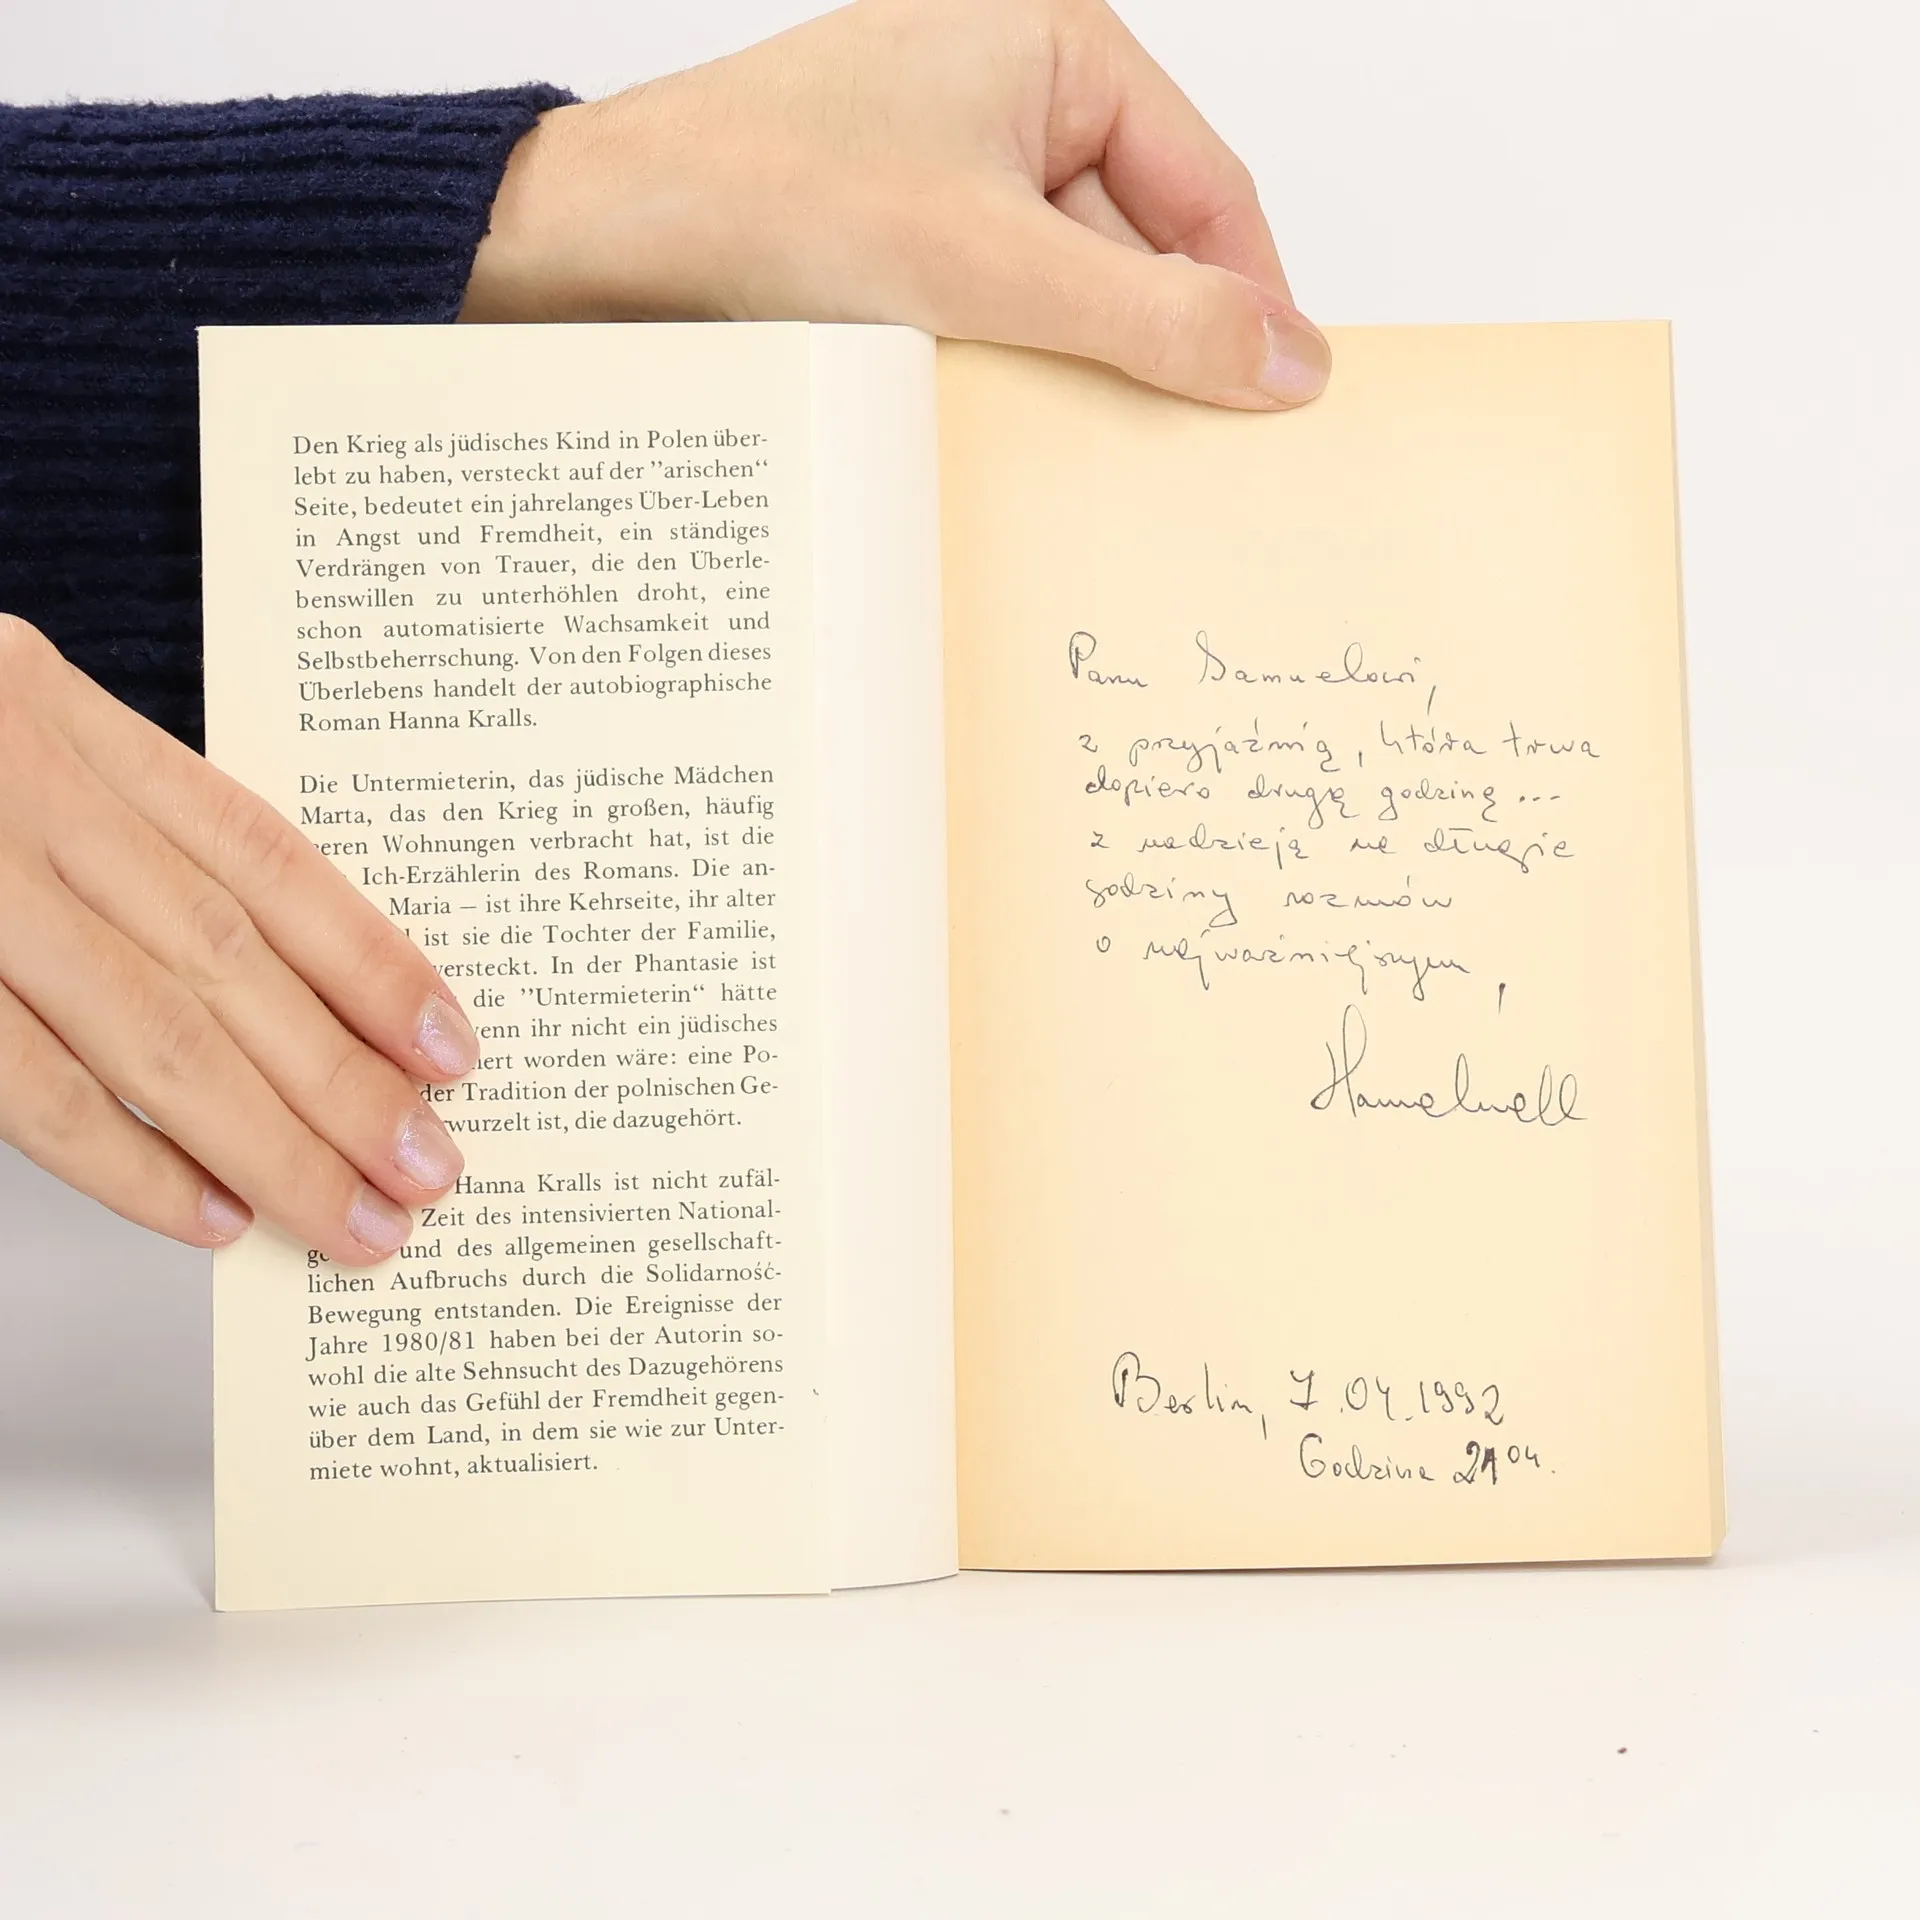 Den Krieg als jüdisches Kind in Polen über-
lebt zu haben, versteckt auf der ”arischen“
Seite, bedeutet ein jahrelanges Über-Leben
in Angst und Fremdheit, ein ständiges
Verdrängen von Trauer, die den Überle-
benswillen zu unterhöhlen droht, eine
schon automatisierte Wachsamkeit und
Selbstbeherrschung. Von den Folgen dieses
Überlebens handelt der autobiographische
Roman Hanna Kralls.
Die Untermieterin, das jüdische Mädchen
Marta, das den Krieg in großen, häufig
Wohnungen verbracht hat, ist die
Ich-Erzählerin des Romans. Die an-
Maria — ist ihre Kehrseite, ihr alter
ist sie die Tochter der Familie,
versteckt. In der Phantasie ist
die ”Untermieterin“ hätte
wenn ihr nicht ein jüdisches
worden wäre: eine Po-
der Tradition der polnischen Ge-
wurzelt ist, die dazugehört.
Hanna Kralls ist nicht zufäl-
Zeit des intensivierten National-
und des allgemeinen gesellschaft-
lichen Aufbruchs durch die Solidarność-
Bewegung entstanden. Die Ereignisse der
Jahre 1980/81 haben bei der Autorin so-
wohl die alte Sehnsucht des Dazugehörens
wie auch das Gefühl der Fremdheit gegen-
über dem Land, in dem sie wie zur Unter-
miete wohnt, aktualisiert.
Panu Samuelowi,
z przyjaźnią, która trwa
dopiero drugą godzinę ...
z nadzieją na długie
godziny rozmów
o najważniejszym,
Hanna Krall
Berlin, 7.04.1992
Godzina 21 04.